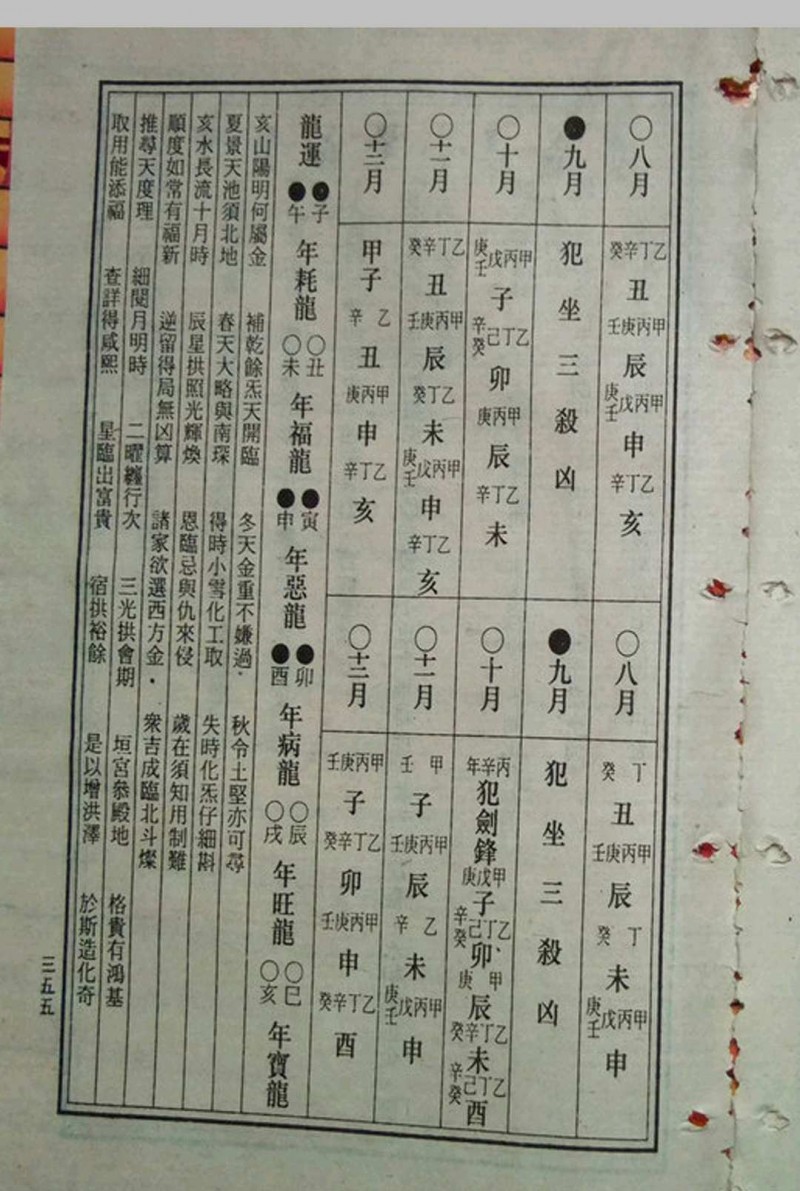 ○八月
乙丁辛癸丑
甲丙庚壬辰
甲丙戊庚壬申
乙丁辛亥
●九月
犯坐三殺凶
○十月
甲丙戊庚壬子
乙丁己辛癸卯
甲丙庚辰
乙丁辛未
○十一月
乙丁辛癸丑
甲丙庚壬辰
乙丁癸未
甲丙戊庚壬申
乙丁辛亥
○十二月
甲子
乙辛丑
甲丙庚申
乙丁辛亥
○八月
丁癸丑
甲丙庚壬辰
丁癸未
甲丙戊庚壬申
●九月
犯坐三殺凶
○十月
丙辛年犯劍鋒
甲戊庚子
乙丁己辛癸卯
甲庚辰
乙丁辛癸未
乙丁己辛癸酉
○十一月
甲壬子
甲丙庚壬辰
乙辛未
甲丙戊庚壬申
○十二月
甲丙庚壬子
乙丁辛癸卯
甲丙庚壬申
乙丁辛癸酉
龍運 ●子●午年耗龍 ○丑○未年福龍 ●寅●申年惡龍 ●卯●酉年病龍 ○辰○戌年旺龍 ○巳○亥年寶龍
亥山陽明何屬金 補乾餘炁天開臨 冬天金重不嫌過 秋令土堅亦可尋
夏景天池須北地 春天大略與南琛 得時小雪化工取 失時化炁仔細斟
亥水長流十月時 辰星拱照光輝煥 恩臨忌與仇來侵 歲在須知用制難
順度如常有福新 逆留得局無凶算 諸家欲選西方金 衆吉成臨北斗燦
推尋天度理 細閱月明時 二曜纏行次 三光拱會期 垣宮參殿地 格貴有鴻基
取用能添福 查詳得咸熙 星臨出富貴 宿拱裕餘 是以增洪澤 於斯造化奇
三五五